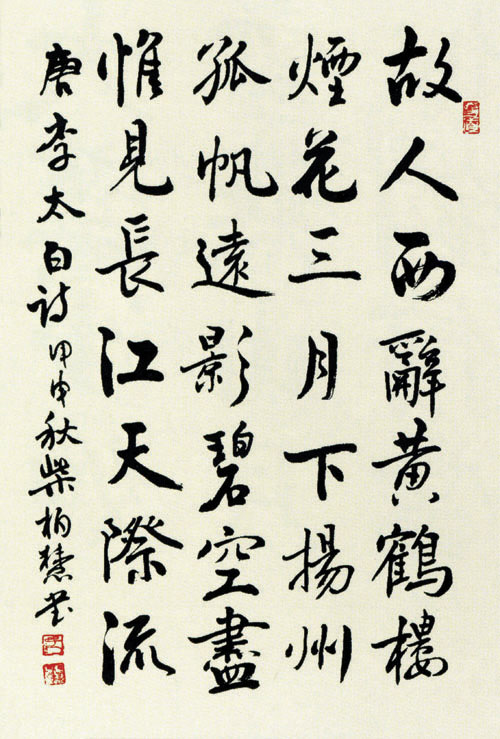 故人西辭黄鶴樓
煙花三月下揚州
孤帆遠影碧空盡
惟見長江天際流
唐李太白詩甲申秋柴柏書